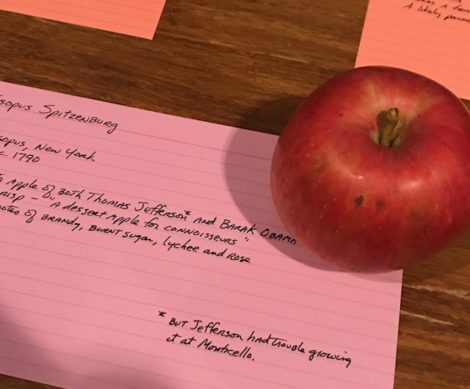 A likely
sopus Spitzenburg
sopus, New York
c. 1790
Apple of both Thomas Jefferson* and Barak Obama
risp - "a dessert apple for connoisseurs"
otes of brandy, burnt sugar, lychee and rose
* But Jefferson had trouble growing
it at Monticello.